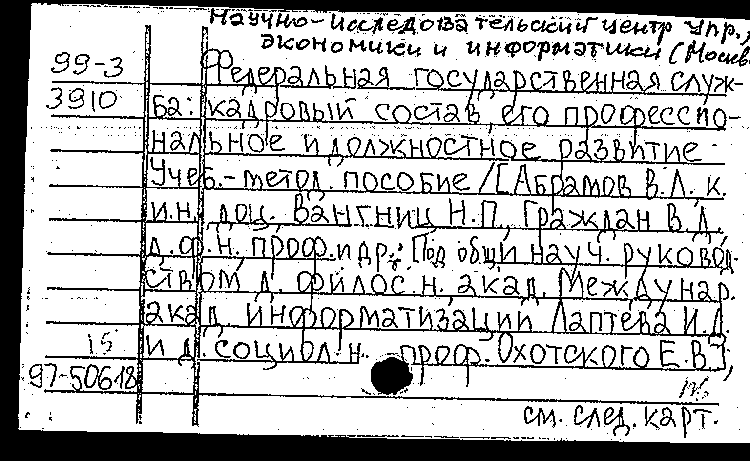 Научно-исследовательский центр упр.,
экономики и информатики (Москв
99-3 Федеральная государственная служ-
3910 ба: кадровый состав, его профессио-
нальное и должностное развитие
Учеб.-метод. пособие /[Абрамов В.Л. к.
и.н., доц., Вангниц Н.П., Граждан В.Д.
д.ф.н., проф. и др.; Под общ. науч. руковод-
ством д. филос. н., акад. Междунар.
акад. информатизации Лаптева И.Д.
15 и д. социол. н. проф. Охотского Е.В.],
97-50618
см. след. карт.